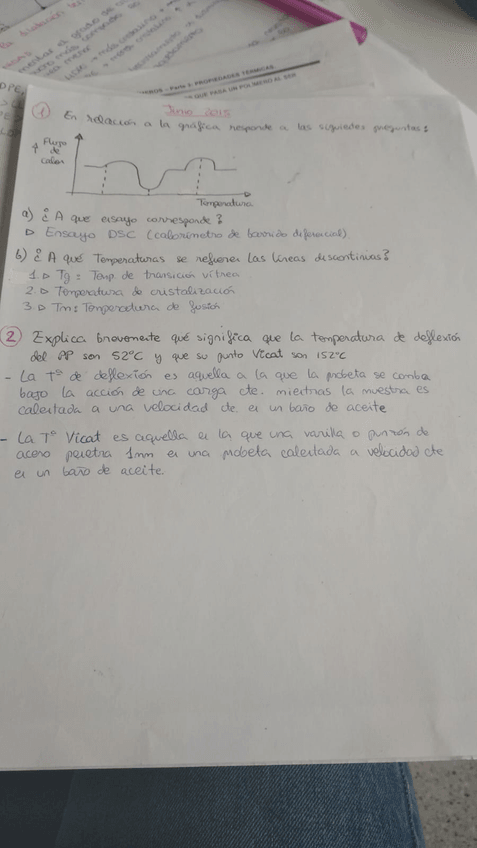 PROPIEDADES TÉRMICAS
Junio 2015
1 En relación a la gráfica responde a las siguientes preguntas:
Flujo
de
calor
Temperatura
a) ¿A que ensayo corresponde?
Ensayo DSC (calorímetro de barrido diferencial)
b) ¿A qué Temperaturas se refieren las líneas discontinuas?
1. Tg: Temp de transición vítrea
2. Temperatura de cristalización
3. Tm: Temperatura de fusión
2 Explica brevemente qué significa que la temperatura de deflexión
del PP son 52°C y que su punto Vicat son 152°C
- La Tº de deflexión es aquella a la que la probeta se comba
bajo la acción de una carga cte. mientras la muestra es
calentada a una velocidad cte en un baño de aceite
- La Tº Vicat es aquella en la que una varilla o punzón de
acero penetra 1mm en una probeta calentada a velocidad cte
en un baño de aceite.